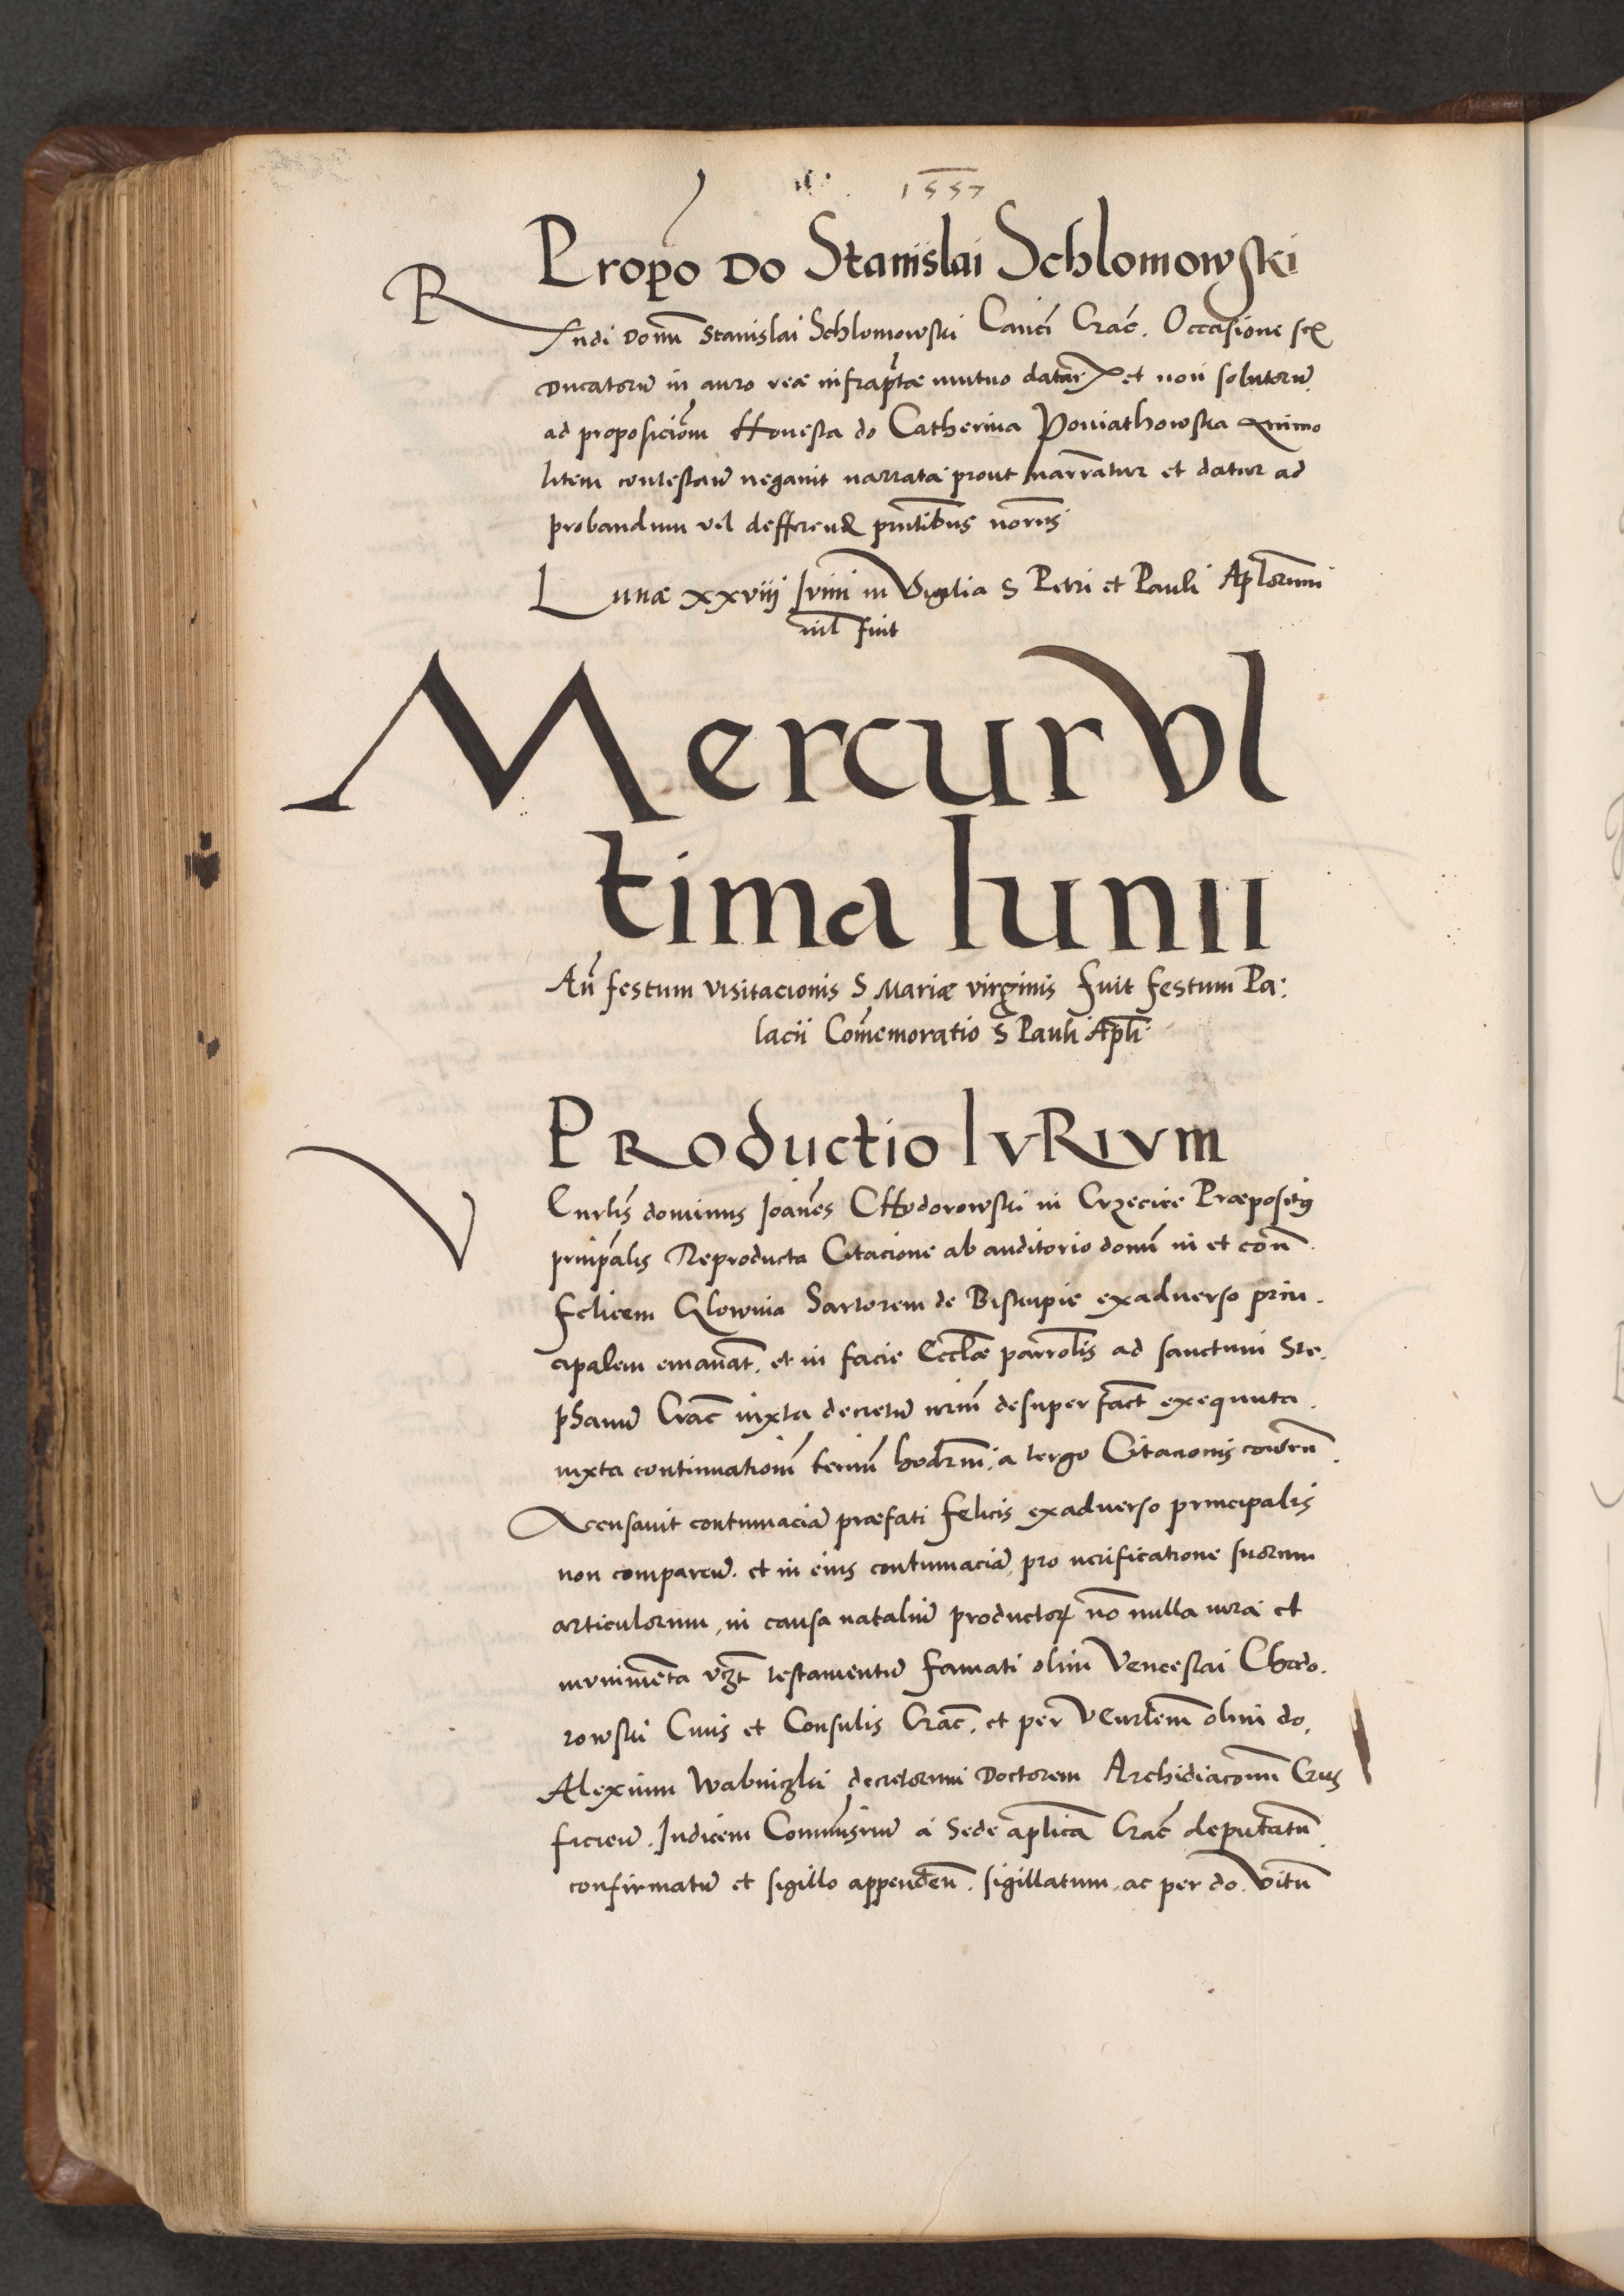 1557
Propo Do Stanislai Schlomowski
Rndi Domi Stanislai Schlomowski Canici Crac. Occasione sex
Ducatorum in auro mutuo datar et non solutorum
ad proposicionem Honesta do Catherina Poniathowska animo
litem contestan negavit narrata prout narrantur et datur ad
probandum vel defferend pntibus
Lunæ xxviij Junii in Vigilia S Petri et Pauli Aplorum
nil fuit
Mercur Vl
tima Iunii
An festum visitacionis S Mariæ virginis fuit festum Pa:
lacii Commemoratio S Pauli Apli
Productio IVRIVM
Venrlis dominus Joannes CHodorowski in Præpositus
principalis Reproducta Citacione ab auditorio domi in et con
felicem Glownia Sartorem de Biskupie exadverso prin.
cipalem emanat. et in facie Eccliæ parrolis ad sanctum Ste.
phanum Crac iuxta decretum desuper fact exequuta.
iuxta continuationem termi hodierni a tergo Citacionis
Accusavit contumaciam præfati felicis exadverso principalis
non comparen. et in eius contumaciam pro verificatione suorum
articulorum, in causa natalium productor non nulla iura et
munimenta vzt testamentum famati olim Venceslai Chodo.
rowski Civis et Consulis Crac. et per Venrlem olim do.
Alexium Wabniczki decretorum Doctorem Archidiaconum Crus
ficien. Judicem Commissrium a Sede aplica Crac deputatum
confirmatum et sigillo appenden. sigillatum, ac per do. Vitum